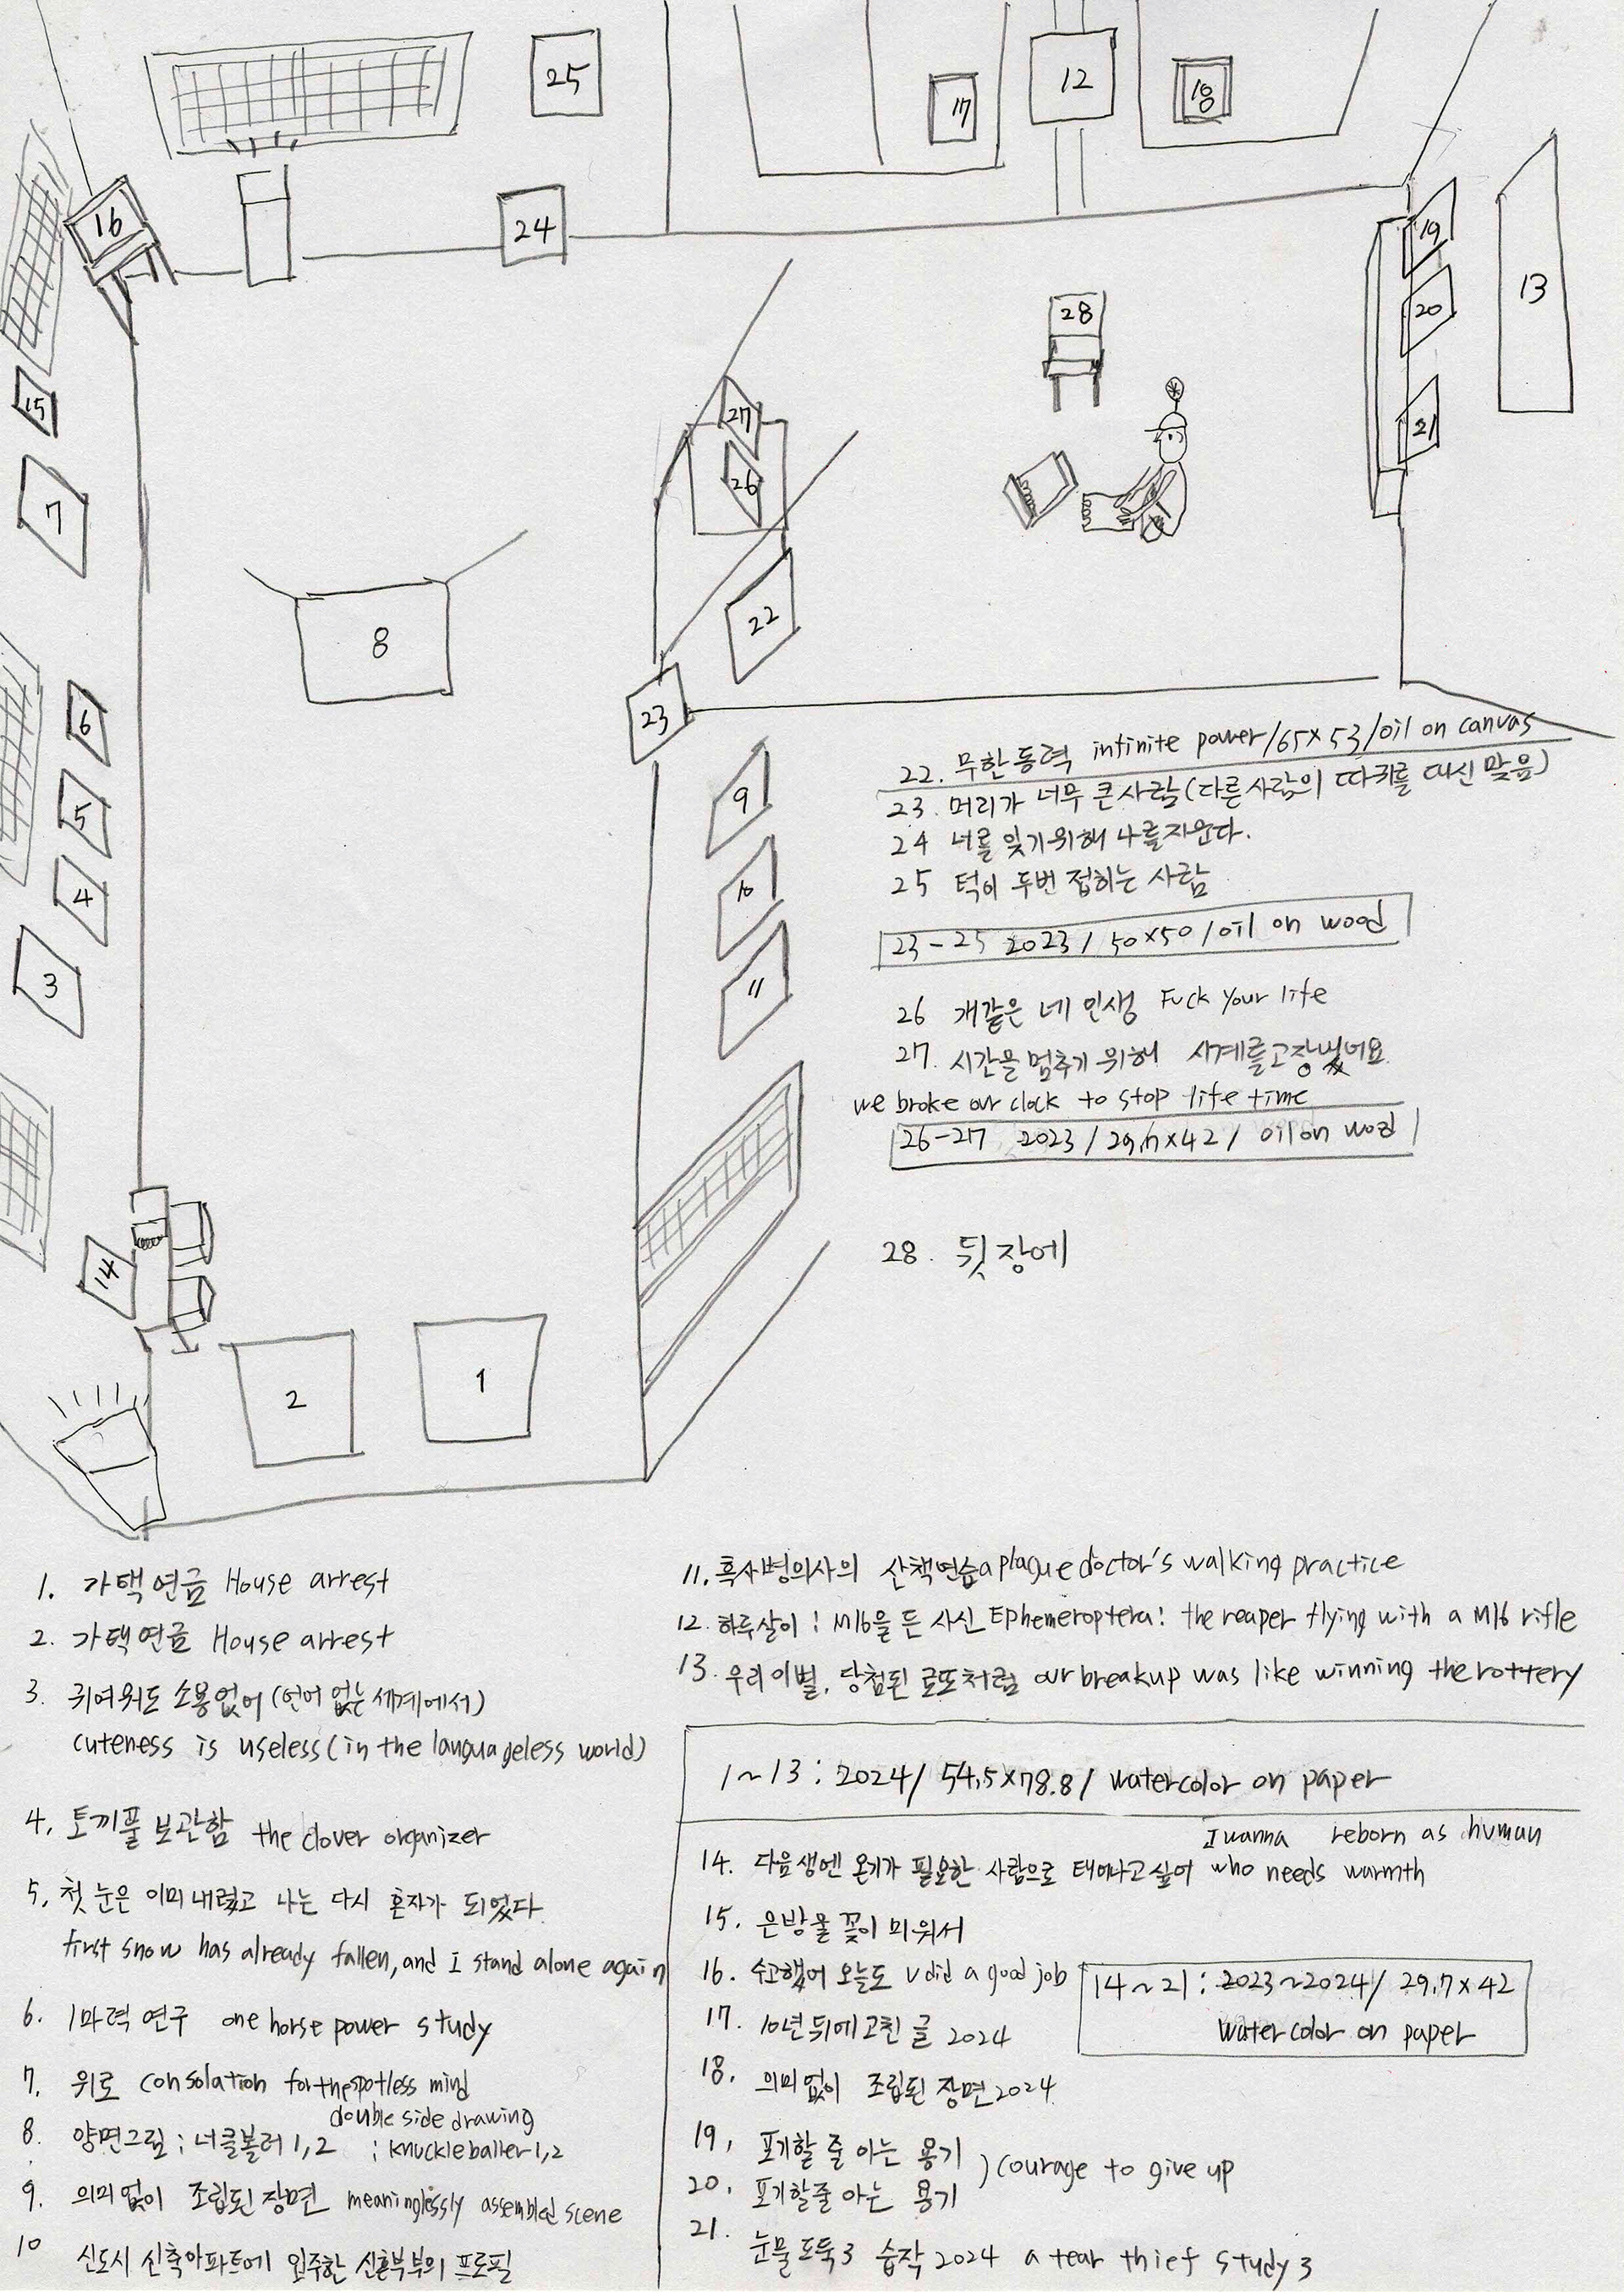 25
17
12
18
16
24
19
20
13
28
15
27
21
7
26
8
22
6
23
5
9
4
10
3
11
14
2
1
22. 무한동력 infinite power/65×53/oil on canvas
23. 머리가 너무 큰사람(다른사람의 따귀를 대신 맞음)
24 너를 잊기위해 나를지운다.
25 턱이 두번 접히는 사람
23-25 2023/50×50/oil on wood
26 개같은 네 인생 Fuck Your life
27. 시간을 멈추기 위해 시계를고장냈어요
we broke our clock to stop life time
26-27 2023/29.7×42/ oil on wood
28. 뒷장에
1. 가택연금 House arrest
2. 가택연금 House arrest
3. 귀여워도 소용없어(언어 없는 세계에서)
cuteness is useless(in the languageless world)
4. 토끼풀 보관함 the clover organizer
5. 첫눈은 이미내렸고 나는 다시 혼자가 되었다.
first snow has already fallen, and I stand alone again
6. 1마력 연구 one horse power study
7. 위로 consolation for the spotless mind
8. 양면그림 : 너클볼러 1,2 double side drawing : knuckleballer 1,2
9. 의미없이 조립된 장면 meaninglessly assembled scene
10 신도시 신축아파트에 입주한 신혼부부의 프로필
11. 흑사병의사의 산책연습 a plague doctor's walking practice
12. 하루살이 : M16을 든 사신 Ephemeroptera: the reaper flying with a M16 rifle
13. 우리이별, 당첨된 로또처럼 our breakup was like winning the rottery
1~13 : 2024/ 54.5×78.8/ watercolor on paper
14. 다음생엔 온기가 필요한 사람으로 태어나고싶어 I wanna reborn as human who needs warmth
15. 은방울 꽃이 미워서
16. 수고했어 오늘도 U did a good job
17. 10년뒤에고친 글 2024
18. 의미없이 조립된 장면 2024
14~21 : 2023~2024/ 29.7×42
watercolor on paper
19. 포기할 줄 아는 용기
20. 포기할줄 아는 용기 ) courage to give up
21. 눈물도둑3 습작 2024 a tear thief study 3